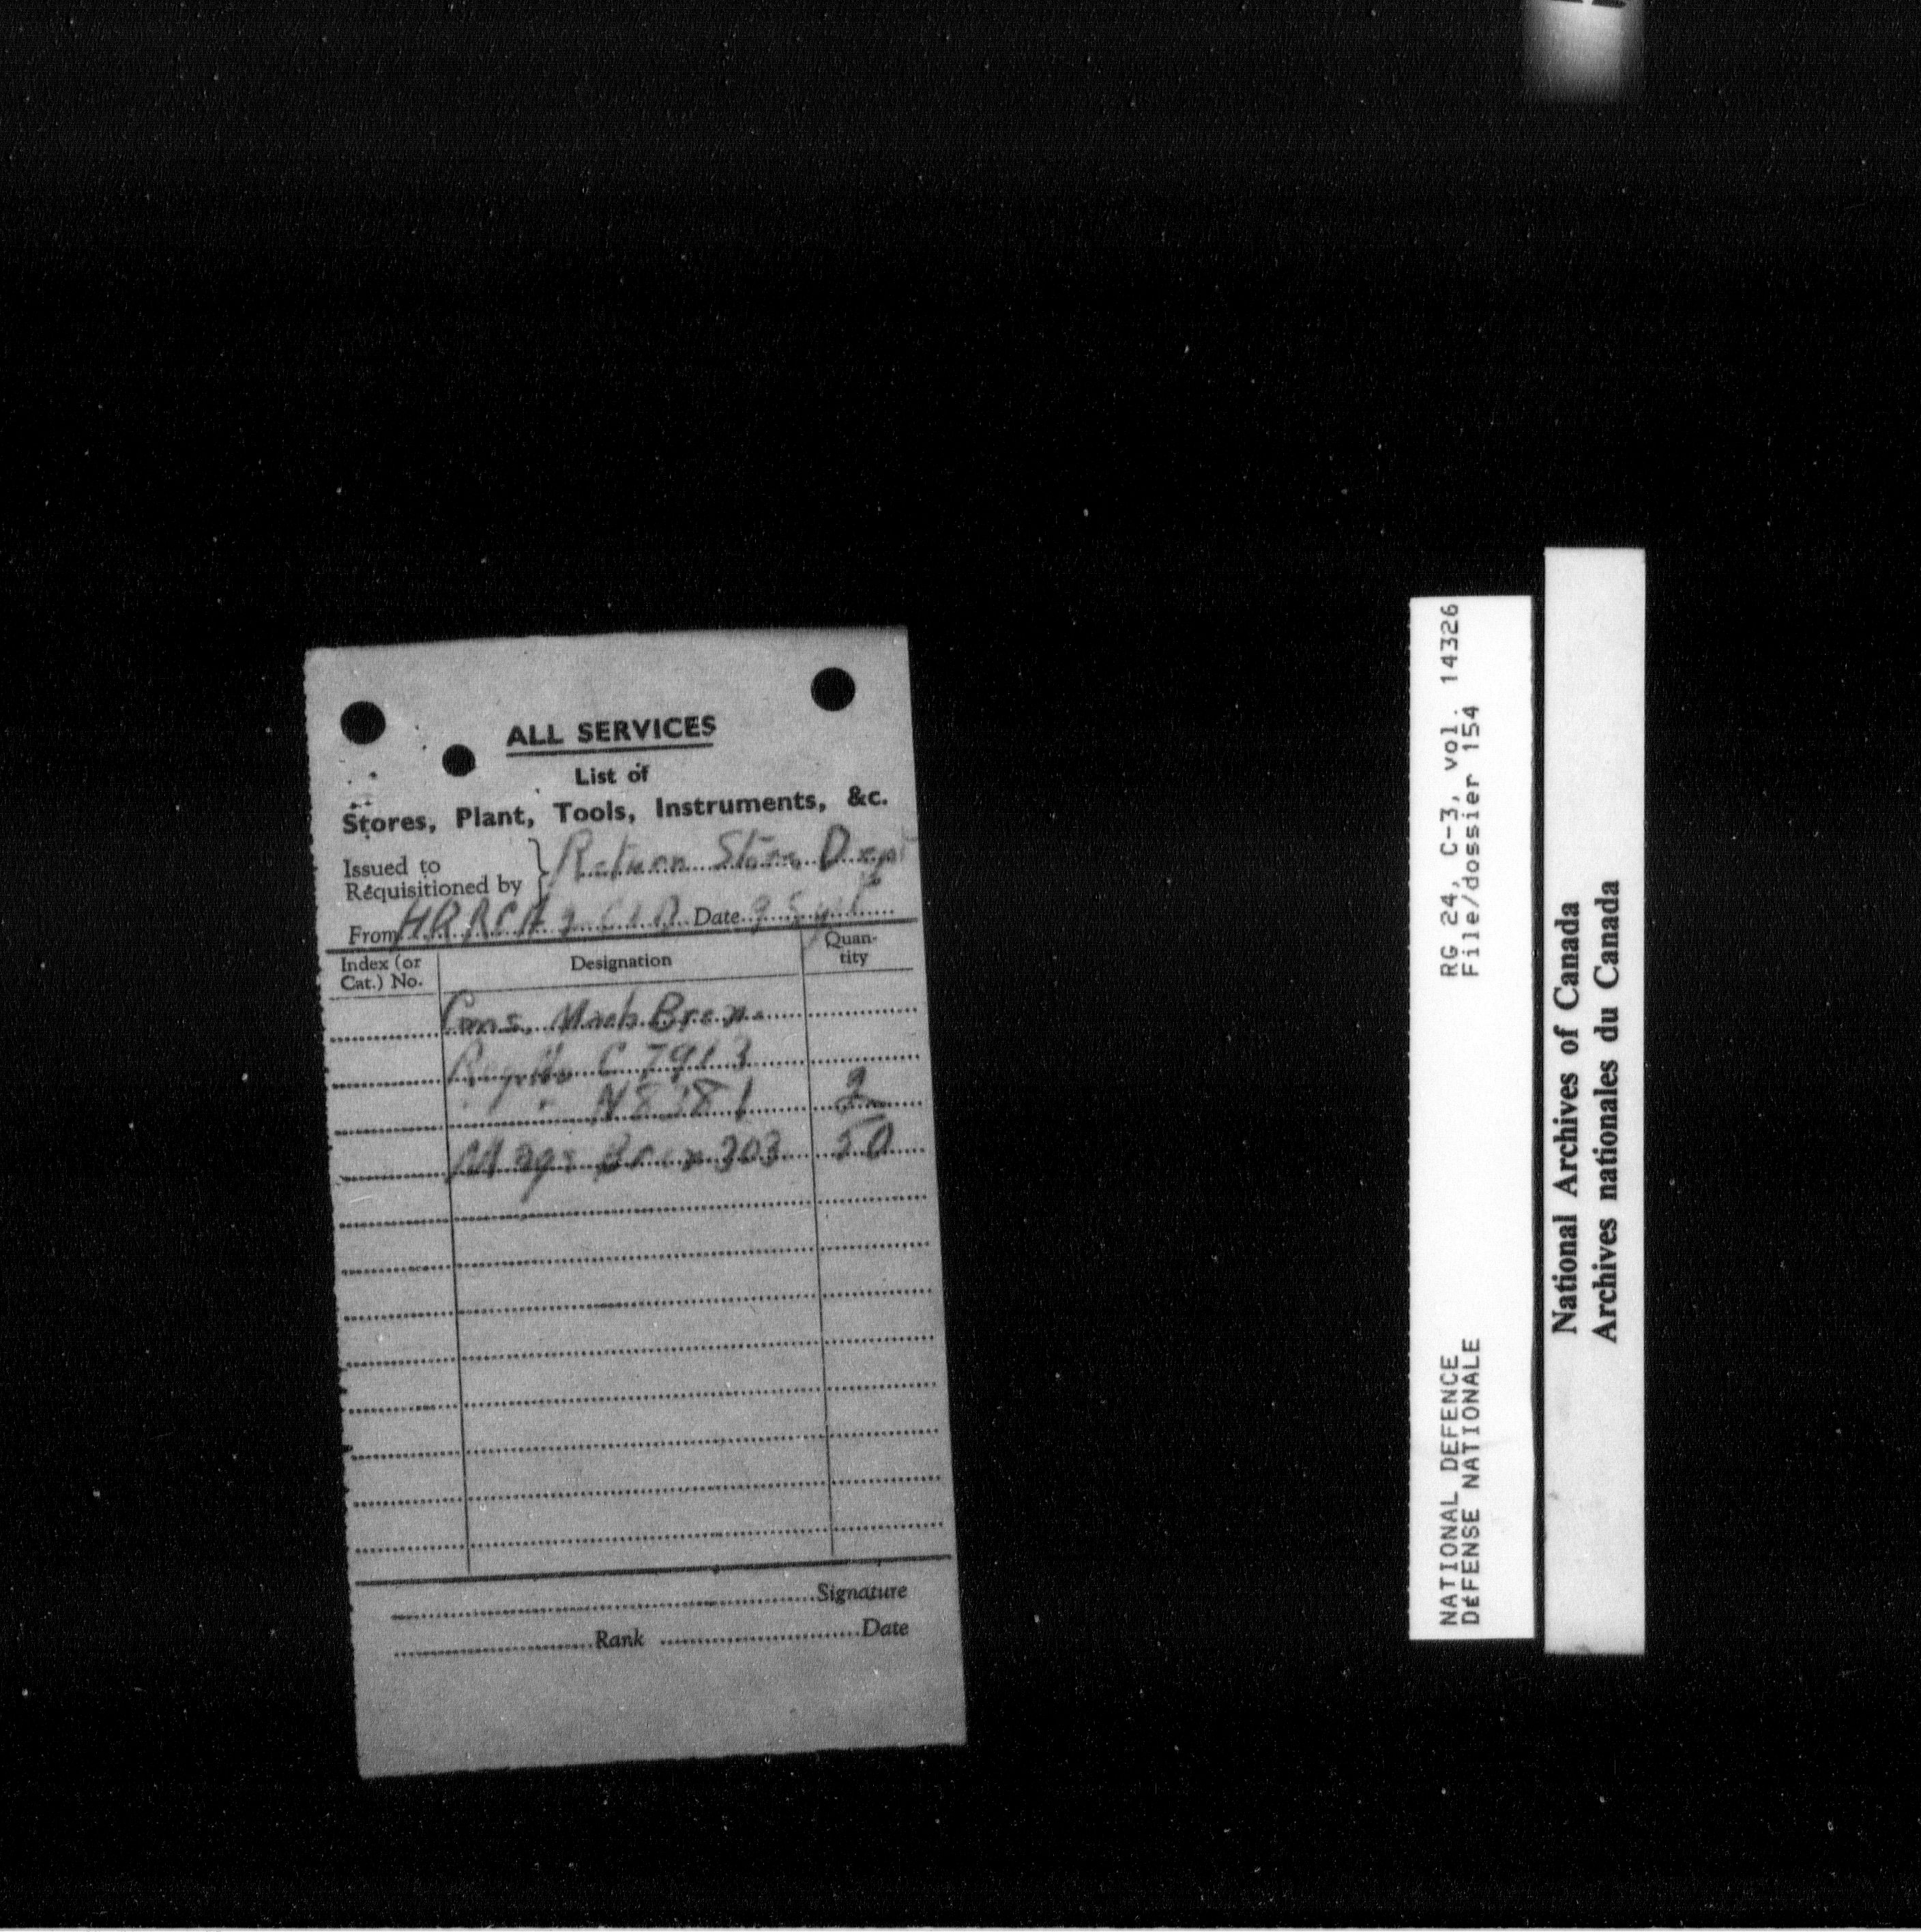 ALL SERVICES
List of
Stores, Plant, Tools, Instruments, &c.
Issued to
Requisitioned by } Return Store Dept
From HQ RCA 2 C.I.D. Date 9 Sept
Index (or Cat.) No. Designation Quantity
Guns, Mach Bren.
Reg. No C 7913
N8381 2
Mags Bren 303 50
Signature
Rank Date
RG 24, C-3, vol. 14326
File/dossier 154
NATIONAL DEFENCE
DÉFENSE NATIONALE
National Archives of Canada
Archives nationales du Canada